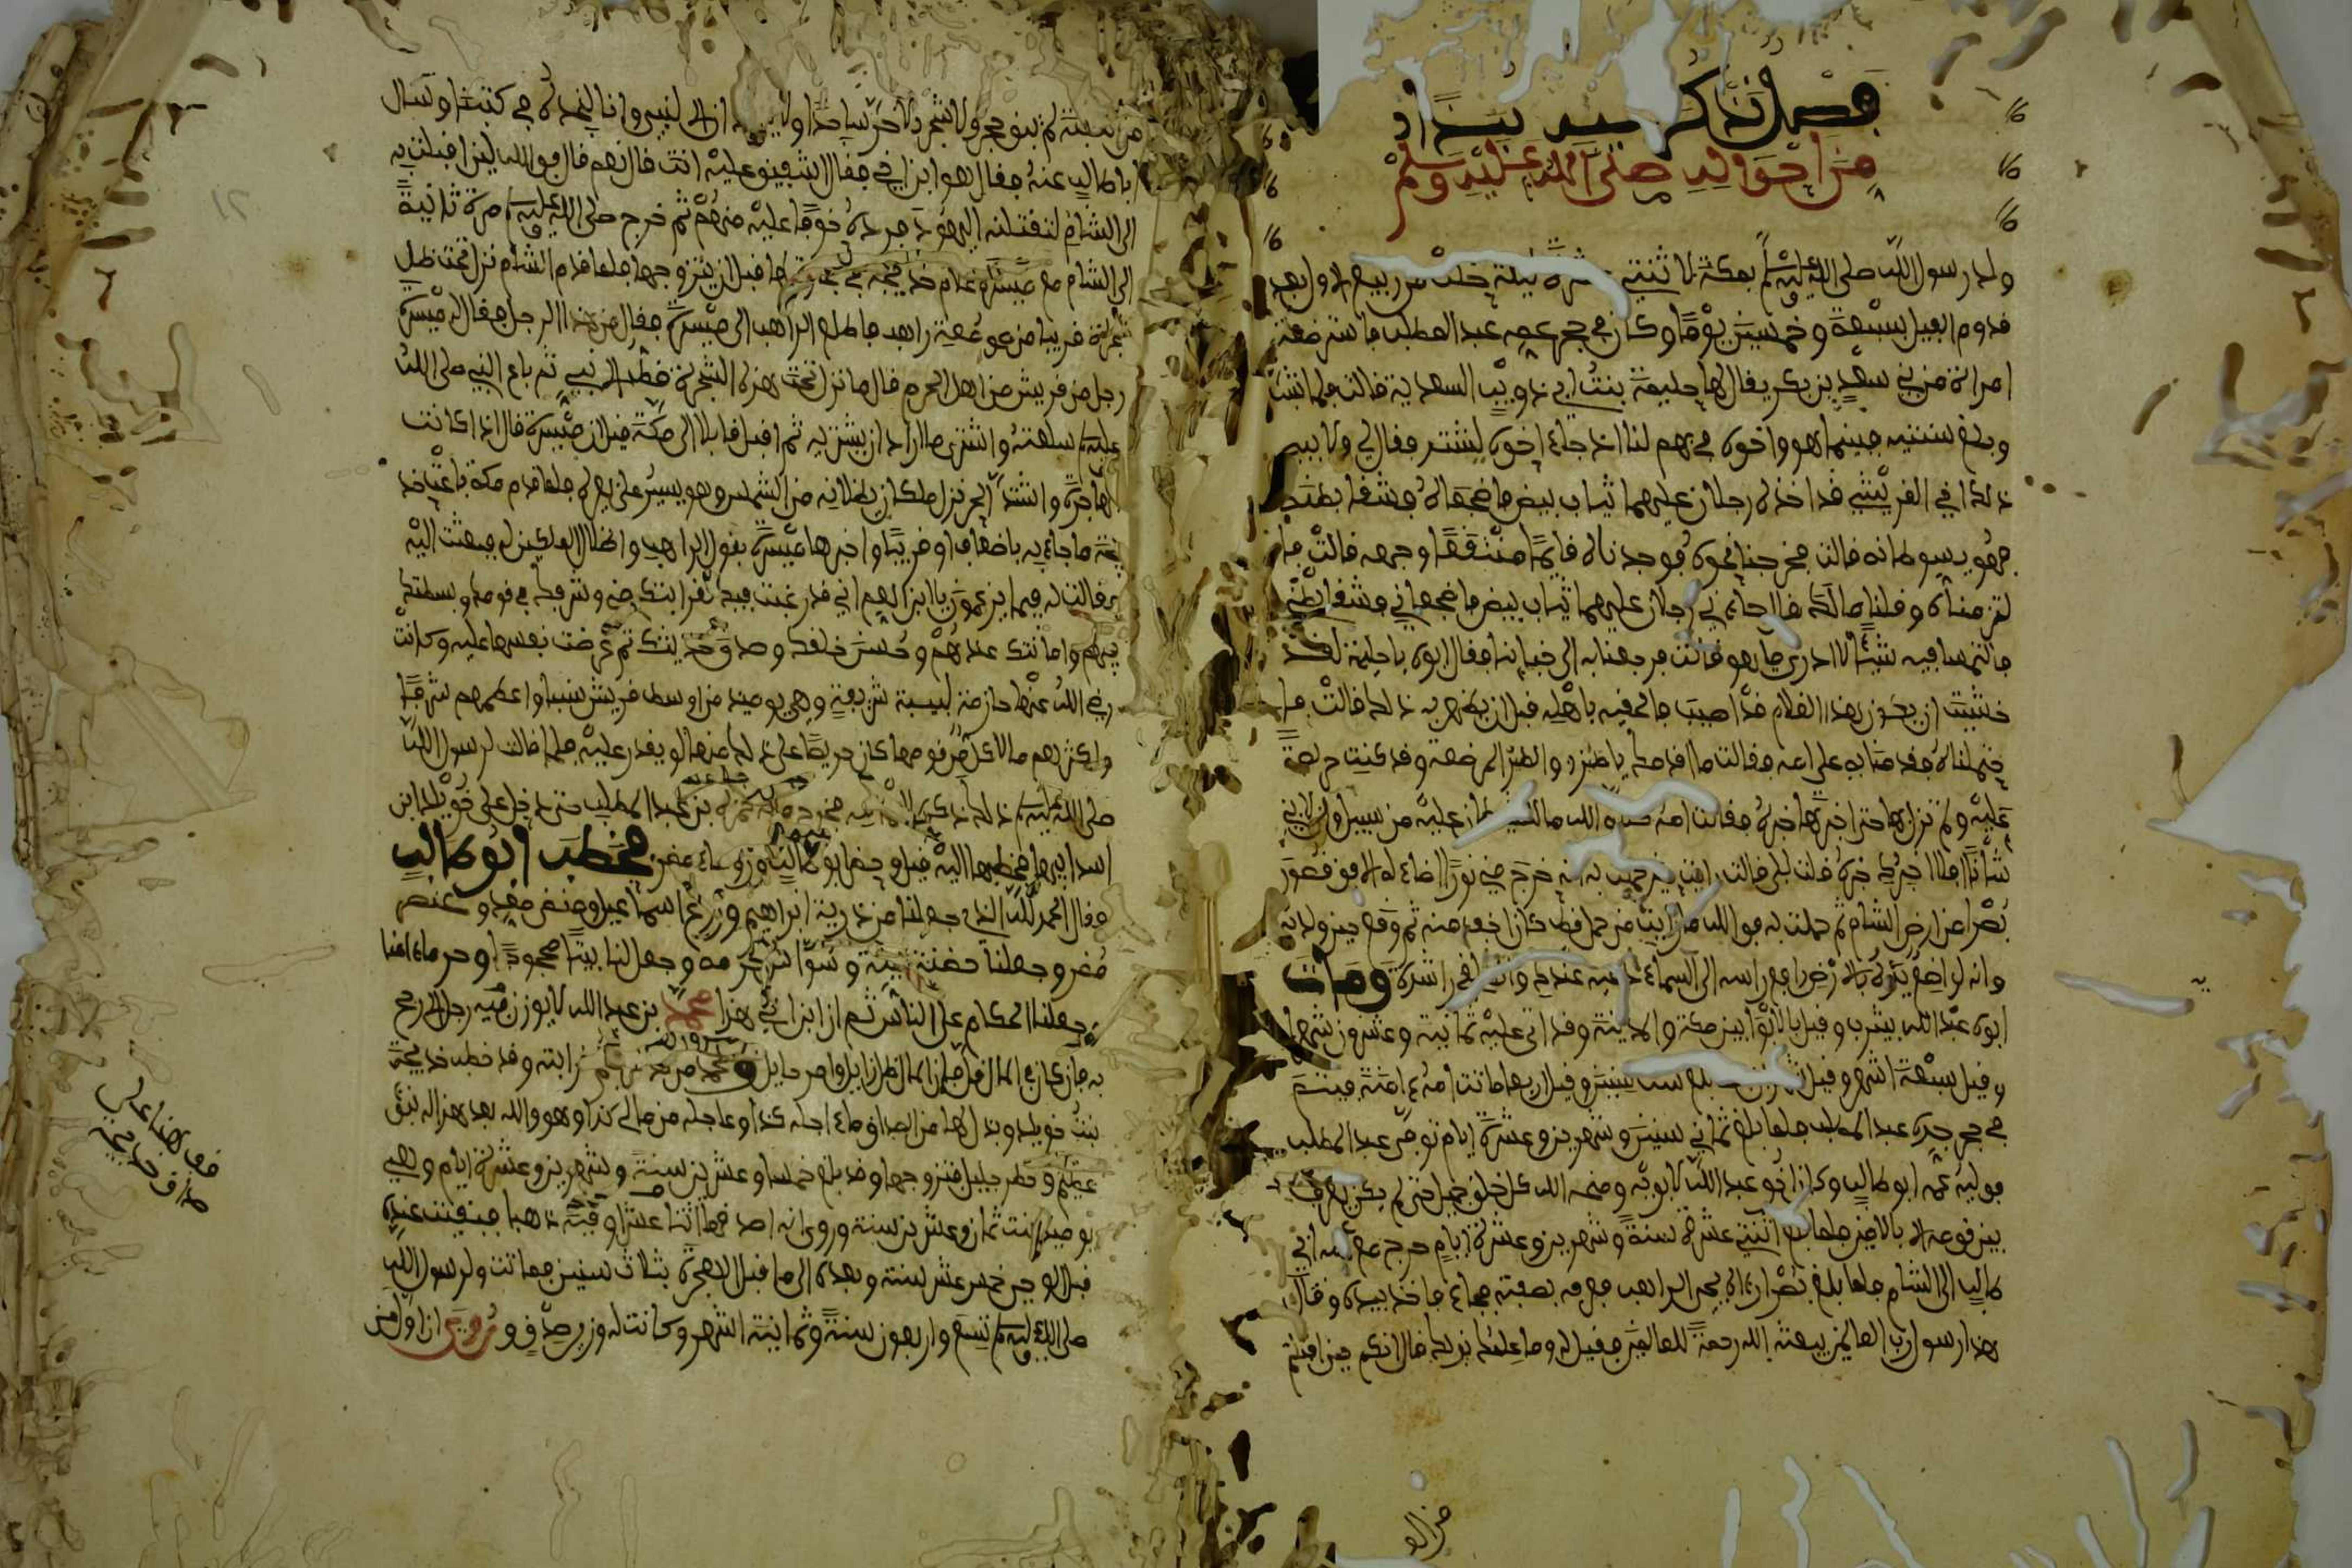 فصل نذكر فيه نبذا
من احواله صلى الله عليه وسلم
ولد رسول الله صلى الله عليه وسلم بمكة لاثنتي عشرة ليلة خلت من ربيع الاول بعد
قدوم الفيل بسبعة وخمسين يوما وكان في حجر عمه عبد المطلب فاسترضعته
امراة من بني سعد بن بكر يقال لها حليمة بنت ابي ذويب السعدية قالت فلما شب
وبلغ سنتيه فبينما هو واخوه في بهم لنا اذ جاء اخوه يشتد فقال لي ولابيه
ذلك اخي القريشي قد اخذه رجلان عليهما ثياب بيض فاضجعاه وشقا بطنه
فهو يسوطانه قالت فخرجنا نحوه فوجدناه قايما منتقعا وجهه قالت فا
لتزمناه وقلنا مالك قال جاءني رجلان عليهما ثياب بيض فاضجعاني وشقا بطني
فالتمسا فيه شيئا لا ادري ما هو قالت فرجعنا به الى خباينا فقال ابوه يا حليمة لقد
خشيت ان يكون هذا الغلام قد اصيب فالحقيه باهله قبل ان يظهر به ذلك قالت فا
حتملناه فقدمنا به على امه فقالت ما اقدمك يا ظئر والظئر المرضعة وقد كنت حريصة
عليه ولم تزل بها حتى اخبرتها خبره فقالت امه كلا والله ما للشيطان عليه من سبيل وان لابني
شانا افلا اخبرك خبره قلت بلى قالت رايت حين حملت به انه خرج مني نور اضاء له الافق قصور
بصرا من ارض الشام ثم حملت به فوالله ما رايت من حمل قط كان اخف منه ثم وقع حين ولدته
وانه لواضع يديه بالارض رافع راسه الى السماء دعيه عندك وانطلقي راشدة ومات
ابوه عبد الله بيثرب وقيل بالابوا بين مكة والمدينة وقد اتى عليه ثمانية وعشرون شهرا
وقيل سبعة اشهر وقيل شهران فلما بلغ ست سنين وقيل اربعا ماتت امه ءامنة فيتم
في حجر جده عبد المطلب فلما بلغ ثماني سنين وشهرين وعشرة ايام توفي عبد المطلب
فوليه عمه ابو طالب وكان اخو عبد الله لابويه ومنحه الله كل خلق جميل حتى لم يكن يعرف
بين قومه الا بالامين فلما بلغ اثنتي عشرة سنة وشهرين وعشرة ايام خرج مع عمه ابي
طالب الى الشام فلما بلغ بصرا رءاه بحيرا الراهب فعرفه بصفته فجاء فاخذ بيده وقال
هذا رسول رب العالمين يبعثه الله رحمة للعالمين فقيل له وما علمك بذلك قال انكم حين اقبلتم
من العقبة لم يبق حجر ولا شجر الا خر ساجدا ولا يسجد ان الا لنبي وانا نجده في كتبنا وسال
ابا طالب عنه فقال هو ابن اخي فقال اشفيق عليه انت قال نعم قال فوالله لئن اقبلت به
الى الشام لتقتلنه اليهود فرده خوفا عليه منهم ثم خرج صلى الله عليه وسلم مرة ثانية
الى الشام مع ميسرة غلام خديجة في تجارتها قبل ان يتزوجها فلما قدم الشام نزل تحت ظل
شجرة قريبا من صومعة راهب فاطلع الراهب الى ميسرة فقال من هذا الرجل فقال له ميسرة
رجل من قريش من اهل الحرم قال ما نزل تحت هذه الشجرة قط الا نبي ثم باع النبي صلى الله
عليه وسلم سلعته واشترى ما اراد ان يشتريه ثم اقبل قافلا الى مكة قيل ان ميسرة قال اذا كانت
الهاجرة واشتد الحر نزل ملكان يظلانه من الشمس وهو يسير على بعيره فلما قدم مكة باعت خد
يجة ما جاء به باضعافا او قريبا واخبرها ميسرة بقول الراهب واظلال الملكين له فبعثت اليه
فقالت له فيما يزعمون يا ابن العم اني قد رغبت فيك لقرابتك مني وشرفك في قومك وبسطتك
فيهم وامانتك عندهم وحسن خلقك وصدق حديثك ثم عرضت نفسها عليه وكانت
رضي الله عنها حازمة لبيبة شريفة وهي يومئذ من اوسط قريش نسبا واعظمهم شرفا
واكثرهم مالا كل من قومها كان حريصا على ذلك منها لو يقدر عليه فلما قالت لرسول الله
صلى الله عليه وسلم ذلك ذكره لاعمامه فخرج معه حمزة بن عبد المطلب حتى دخل على خويلد ابن
اسد ابيها فخطبها اليه قيل وحضر ابو طالب ورؤساء مضر فخطب ابو طالب
فقال الحمد لله الذي جعلنا من ذرية ابراهيم وزرع اسماعيل وضئضئ معد وعنصر
مضر وجعلنا حضنة بيته وسواس حرمه وجعل لنا بيتا محجوجا وحرما ءامنا
وجعلنا الحكام على الناس ثم ان ابن اخي هذا محمد بن عبد الله لا يوزن به رجل الا رجح
به فان كان في المال قل فان المال ظل زايل وامر حايل ومحمد من قد عرفتم قرابته وقد خطب خديجة
بنت خويلد وبذل لها من الصداق ما ءاجله كذا وعاجله من مالي كذا وهو والله بعد هذا له نبؤ
عظيم وخطر جليل فتزوجها وقد بلغ خمسا وعشرين سنة وشهرين وعشرة ايام وهي
يوميذ بنت ثمان وعشرين سنة وروي انه اصدقها اثنا عشر اوقية ذهبا فبقيت عنده
قبل الوحي خمس عشر سنة وبعده الى ما قبل الهجرة بثلاث سنين فماتت ولرسول الله
صلى الله عليه وسلم تسع واربعون سنة وثمانية اشهر وكانت له وزير صدق وروي ان اول من